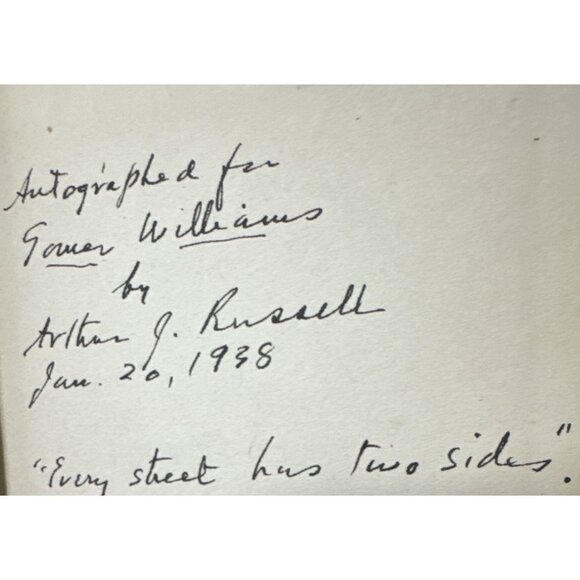 Autographed for
Gomer Williams
by
Arthur J. Russell
Jan. 20, 1938
"Every street has two sides".